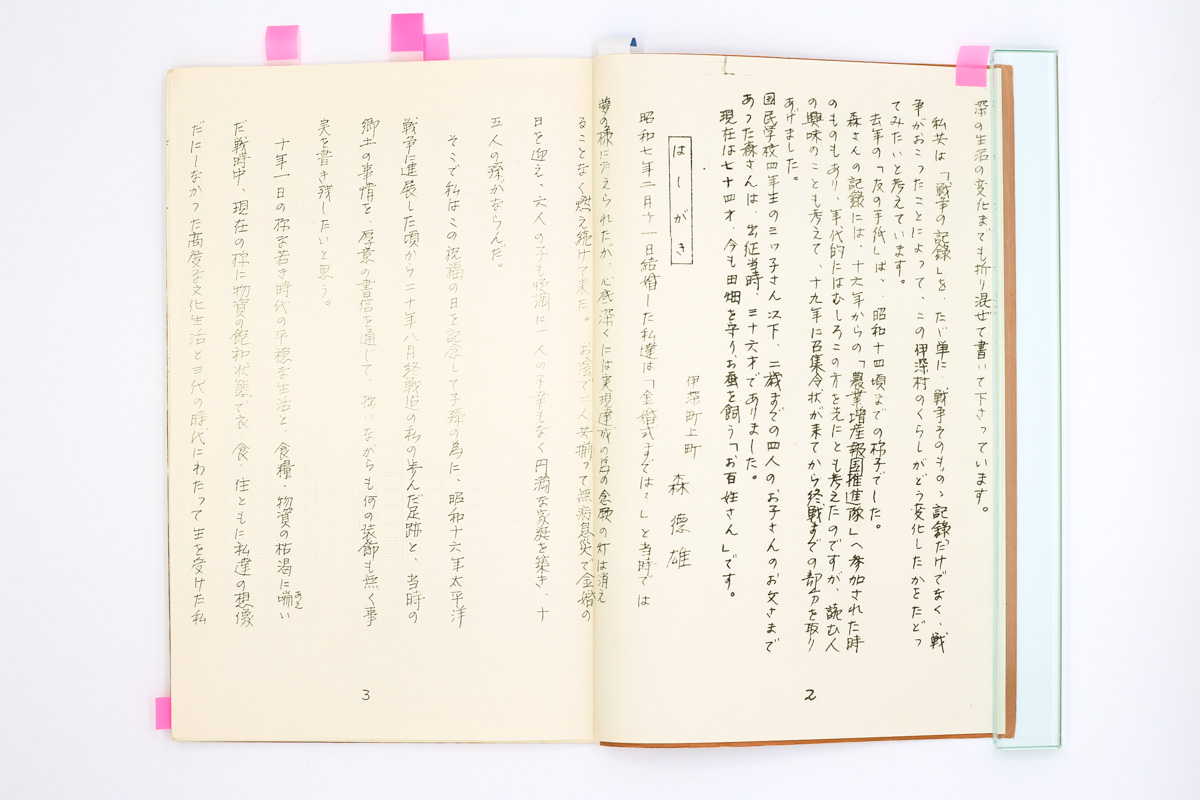 深の生活の変化までも折り混ぜて書いて下さっています。
私共は「戦争の記録」を、たゞ単に、戦争そのものゝ記録だけでなく、戦
争がおこったことによって、この伊深村のくらしがどう変化したかをたどっ
てみたいと考えています。
去年の「友の手紙」は、昭和十四頃までの様子でした。
森さんの記録には、十六年からの「農業増産報国推進隊」へ参加された時
のものもあり、年代的にはむしろこの方を先にとも考えたのですが、読む人
の興味のことも考えて、十九年に召集令状が来てから終戦までの部分を取り
あげました。
国民学校四年生の三ツ子さん以下、二歳までの四人のお子さんのお父さまで
あった森さんは、出征当時、三十六才でありました。
現在は七十四才、今も田畑を守り、お蚕を飼う「お百姓さん」です。
伊深町上町 森 徳雄
はしがき
昭和七年二月十一日結婚した私達は「金婚式までは:」と当時では
夢の様に だが、心底深くには実現達成の為の念願の灯は消え
ることなく燃え続けて来た。お陰で二人共揃って無病息災で金婚の
日を迎え、六人の子も 一人の不幸もなく円満な家庭を築き、十
五人の孫がならんだ。
そこで私はこの祝福の日を記念して子孫の為に、昭和十六年太平洋
戦争に進展した頃から二十年八月終戦迄の私の歩んだ足跡と、当時の
郷土の事情を、厚意の書信を通して、拙いながらも何の装飾も無く事
実を書き残したいと思う。
十年一日の様な若き時代の平穏な生活と、食糧・物資の枯渇に喘い
あえ
だ戦時中、現在の様に物資の飽和状態で衣・食・住ともに私達の想像
だにしなかった高度な文化生活と三代の時代にわたって生を受けた私
2
3